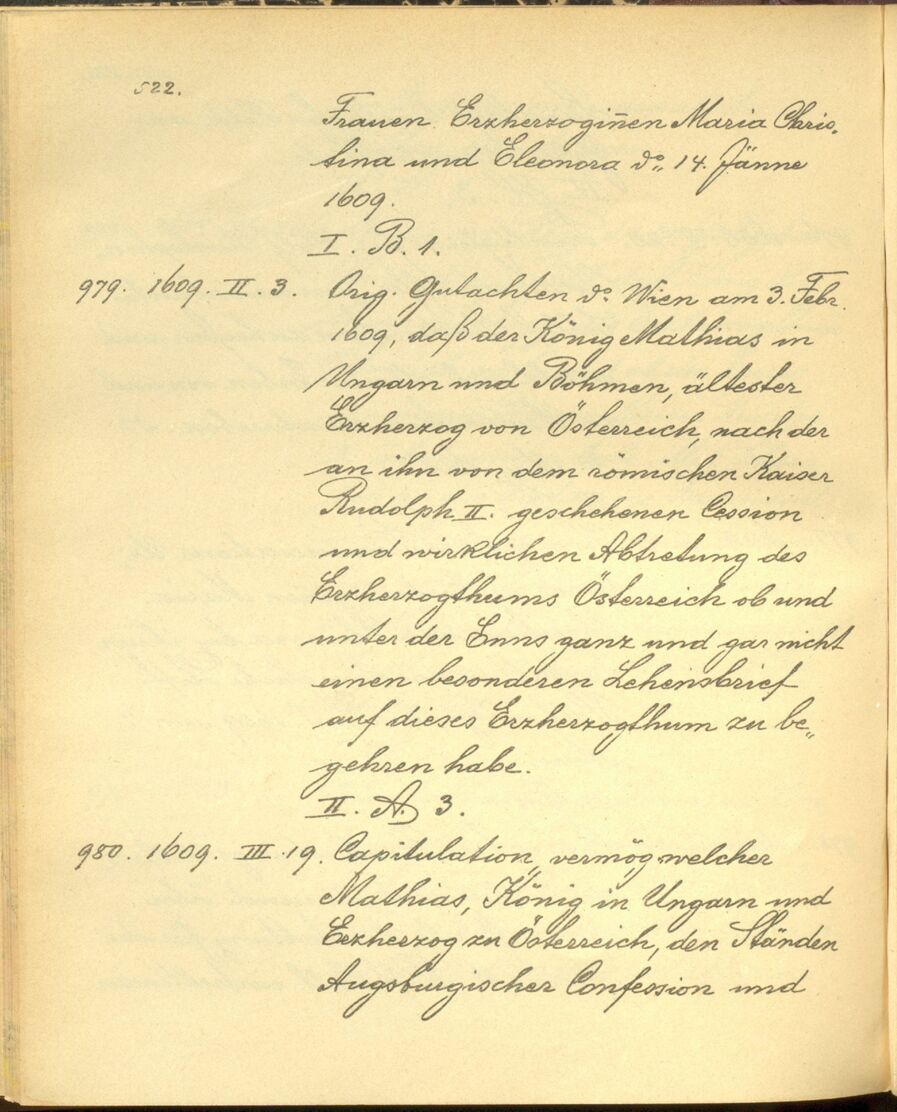 522.
Frauen Erzherzogin̄en Maria Chris„
tina und Eleonora do„ 14. Jänne
1609.
I. B. 1.
979. 1609. II. 3. Orig. Gutachten do. Wien am 3. Febr.
1609, daß der König Mathias in
Ungarn und Böhmen, ältester
Erzherzog von Österreich, nach der
an ihn von dem römischen Kaiser
Rudolph II. geschehenen Cession
und wirklichen Abtretung des
Erzherzogthums Österreich ob und
unter der Enns ganz und gar nicht
einen besonderen Lehensbrief
auf dieses Erzherzogthum zu be„
gehren habe.
II. A. 3.
980. 1609. III. 19. Capitulation, vermög welcher
Mathias, König in Ungarn und
Erzherzog zu Österreich, den Ständen
Augsburgischer Confession und